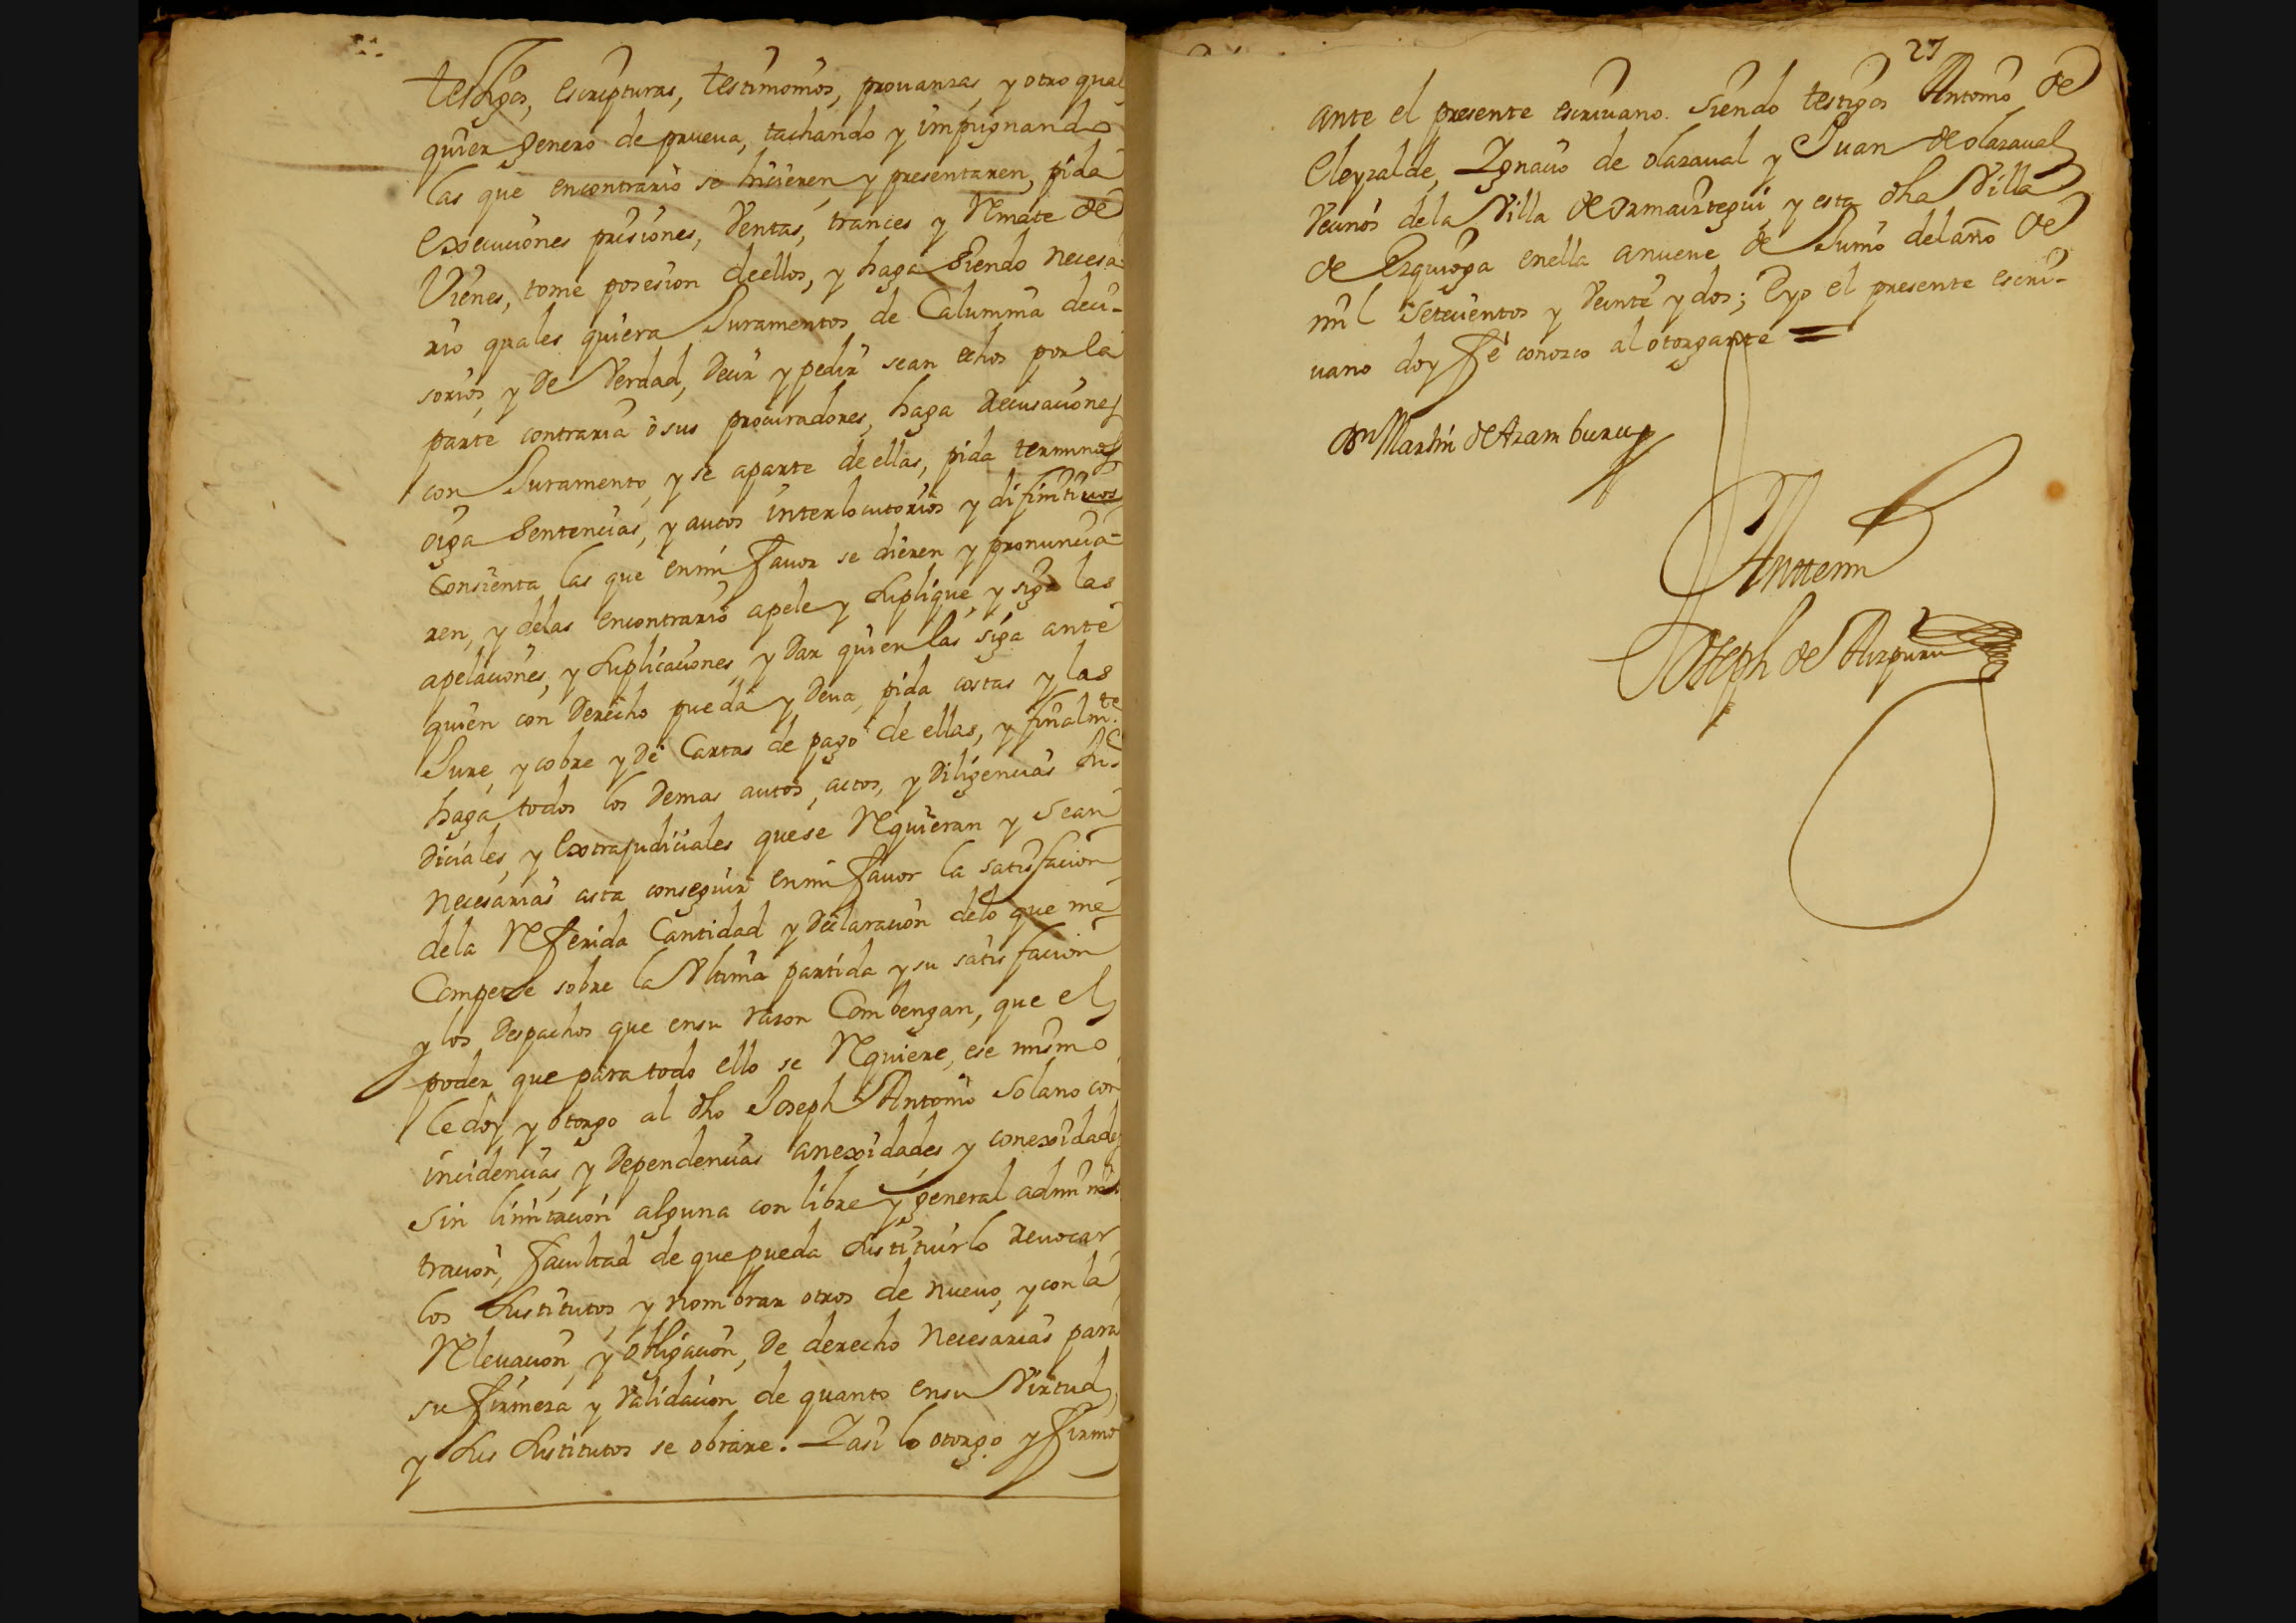 testigos, escripturas, testimonios, prouanzas, y otro qual
quier genero de prueua, tachando y impugnando
las que encontrario se hicieren, y presentaren, pida
execuciones prisiones, Ventas, trances y Rmate de
Vienes, tome posesion deellos, y haga Siendo necesa-
rio quales quiera Juramentos de Calumnia deci-
sorios, y De Verdad, Decir y pedir sean echos por la
parte contraria ò sus procuradores, haga recusaciones
con Juramento, y se aparte de ellas, pida terminos
oiga Sentencias, y autos interlocutorios y difinitiuos
Consienta las que enmi fauor se dieren y pronuncia-
ren, y delas encontrario apele y suplique, y siga las
apelaciones, y suplicaciones, y Dar quien las siga ante
quien con Derecho pueda y Deua, pida costas y las
Jure, y cobre y Dè Cartas de pago de ellas, y finalmte.
haga todos los Demas autos, actos, y Diligencias Ju-
diciales, y Extrajudiciales quese Rquieran y sean
necesarias asta conseguir enmi fauor la satisfacion
dela Rferida Cantidad y Declaracion delo que me
Compete sobre la Vltima partida y su satisfacion
y los Despachos que ensu razon Combengan, que el
poder que para todo ello se Rquiere, ese mismo
le doy y otorgo al dho Joseph Antonio Solano con
incidencias, y Dependencias anexidades y conexidades
sin limitacion alguna con libre y general adminis-
tracion, facultad de que pueda sustituirlo reuocar
los sustitutos, y nombrar otros de nueuo, y con la
Rleuacion, y obligacion, De derecho necesarias para
su firmeza y Validacion de quanto ensu Virtud,
y sus sustitutos se obrare. Y asi lo otorgo y firmo
27
ante el presente escriuano. Siendo testigos Antonio de
Eleyzalde, Ygnacio de olazaual y Juan de olazaual
Vecinos dela Villa de ormaiztegui, y esta dha Villa
de Ezquioga enella anueue de Junio delaño de
mil Setecientos y Veinte y dos; Eyo el presente escri-
uano doy fe conozco al otorgante =
Dn Martin de Aramburu
Antemi
Joseph de Aizpuru